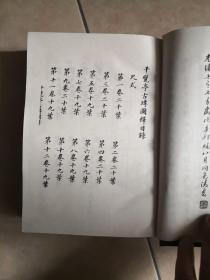 千甓亭古塼圖釋目錄
尺式
第一卷二十葉
第二卷二十葉
第三卷二十葉
第四卷二十葉
第五卷十九葉
第六卷十九葉
第七卷十九葉
第八卷十九葉
第九卷二十葉
第十卷十九葉
第十一卷十九葉
第十二卷十九葉